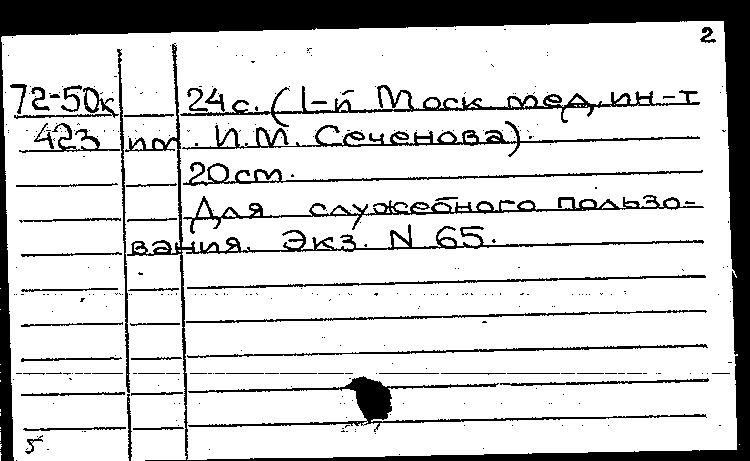 2
72-50к 24с. (I-й Моск мед. ин-т
423 им. И.М. Сеченова).
20см.
Для служебного пользо-
вания. Экз. N 65.
5